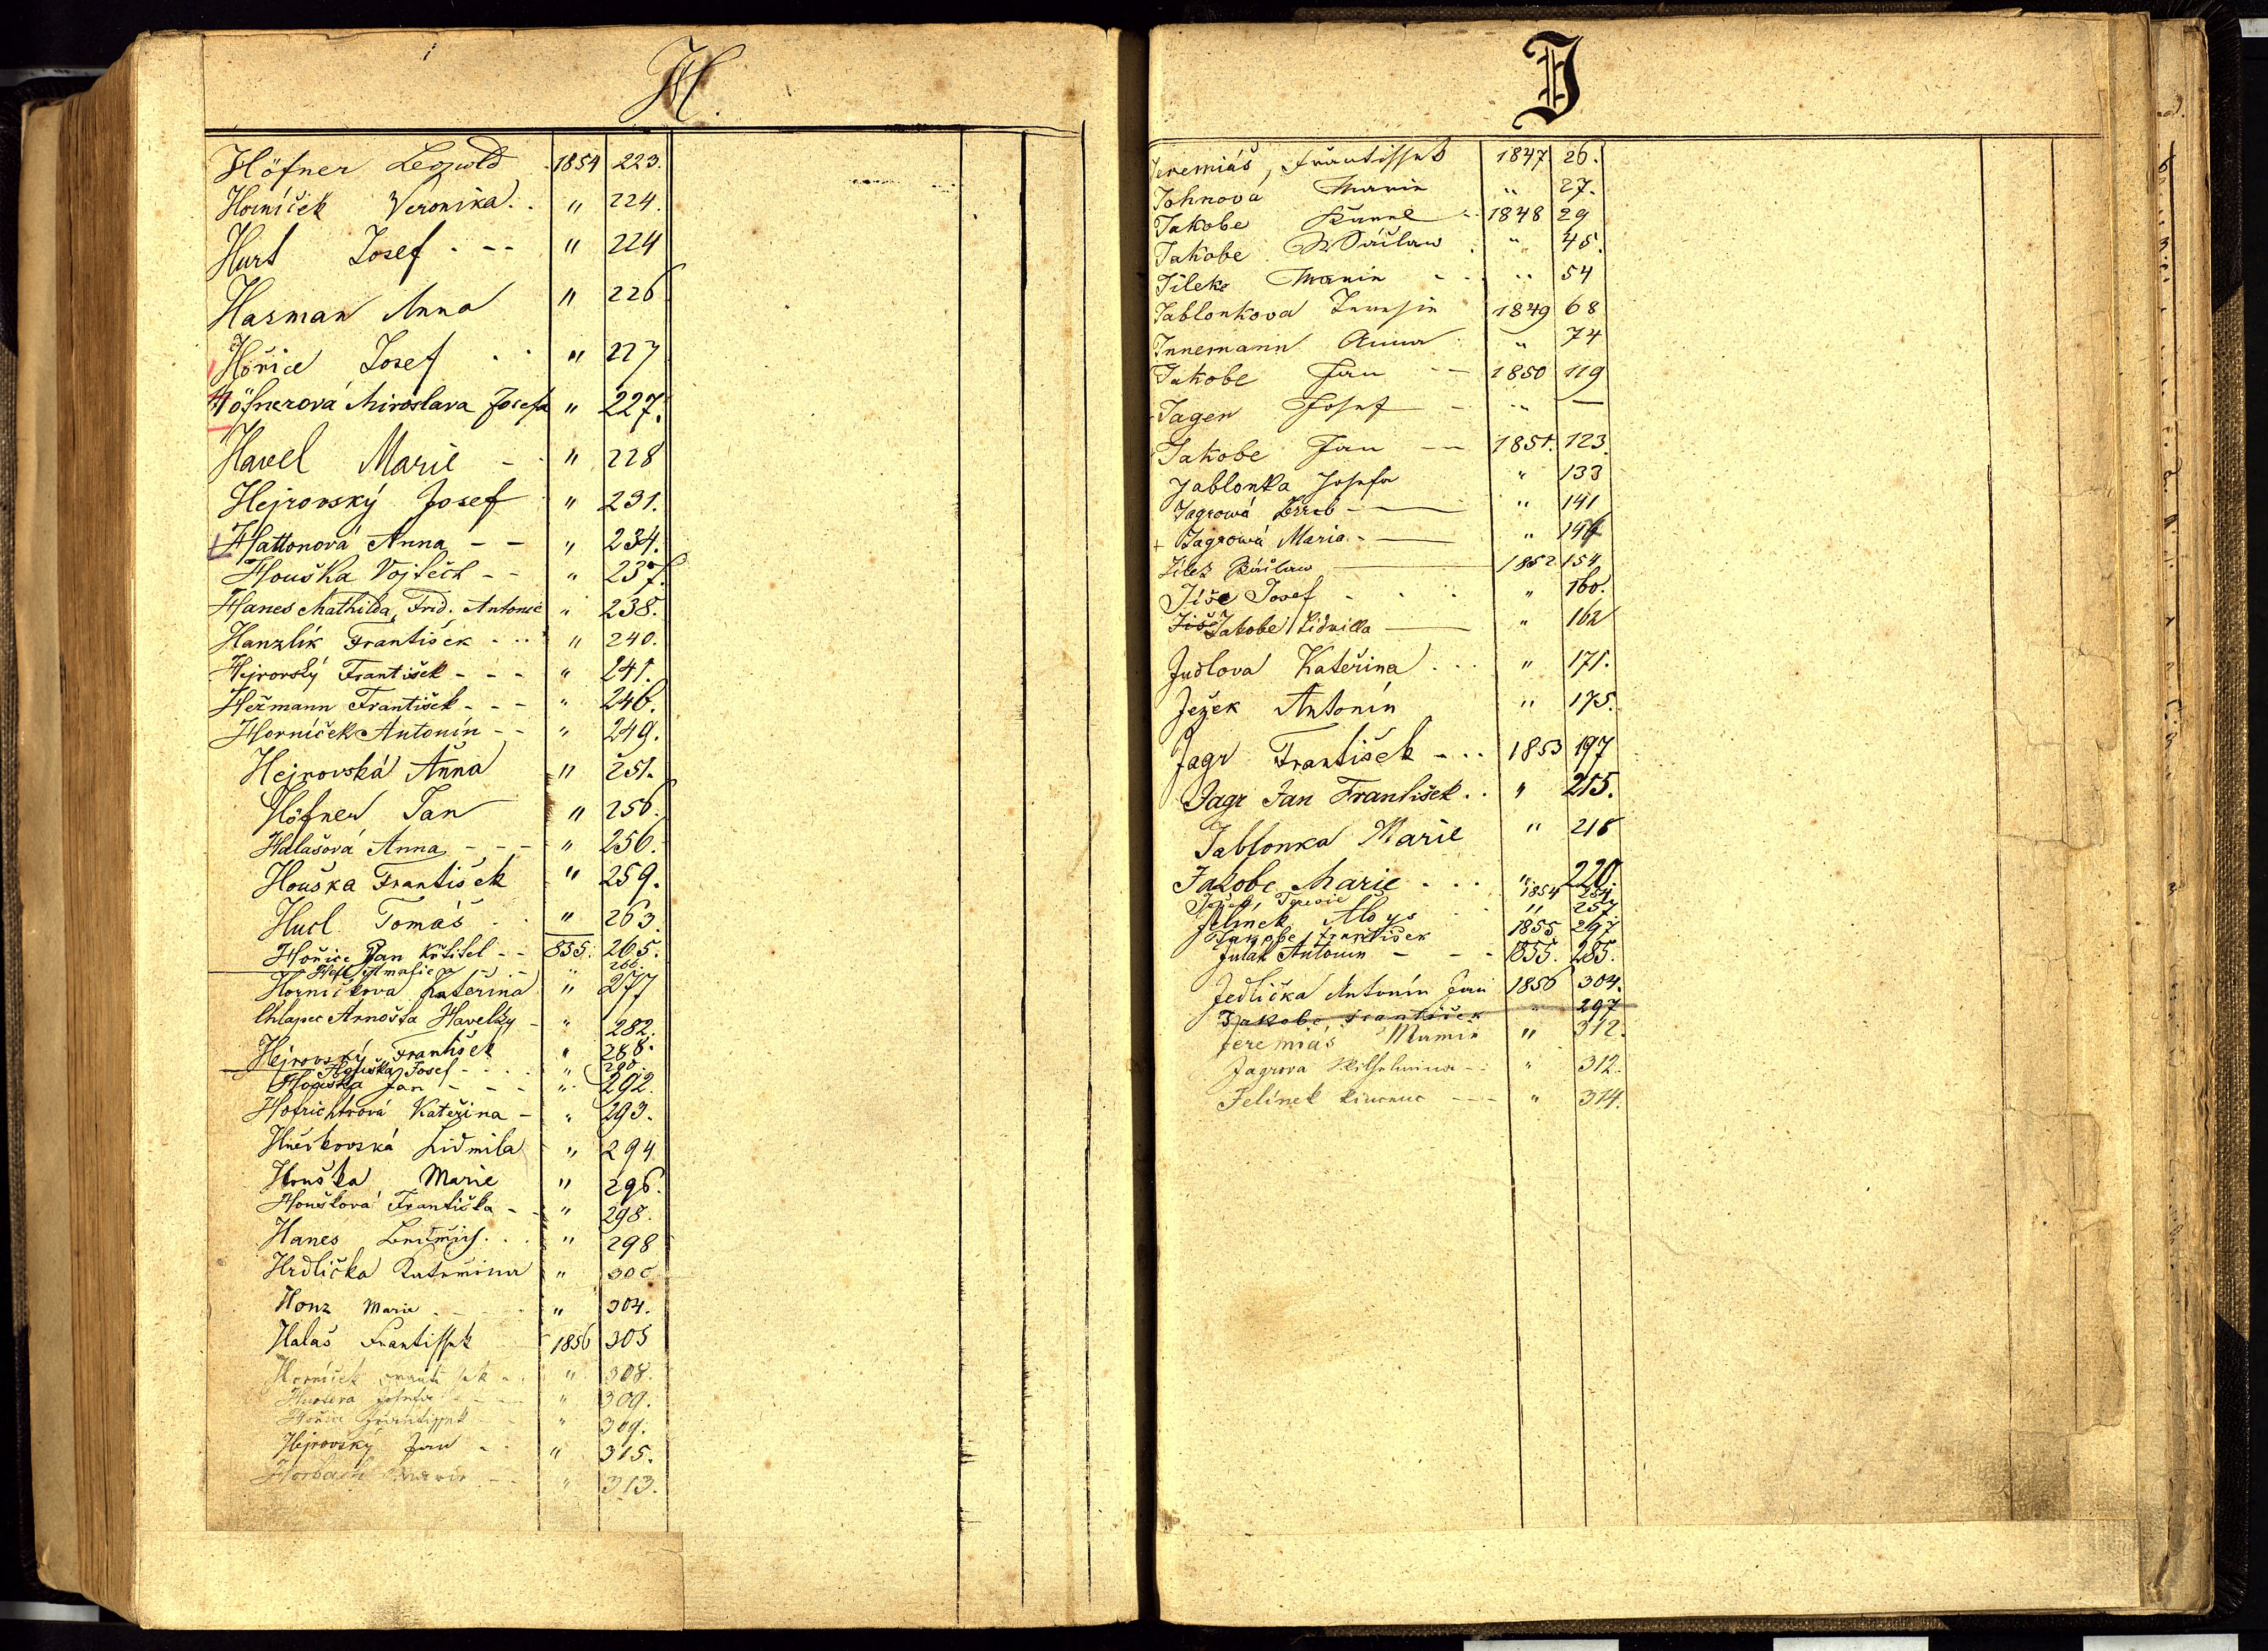 H.
Höfner Leopold 1854 223.
Horníček Veronika. . " 224.
Hurt Josef . -- " 224
Hasman Anna " 226
Hořice Josef . . " 227
Höfnerová Miroslava Josefa " 227.
Havel Marie - . " 228
Hejrovský Josef " 231.
Hattonová Anna - - " 234.
Houška Vojtěch - - " 237.
Hanes Mathilda, Frid. Antonie " 238.
Hanzlík František - . . . " 240.
Hejrovský František - - - " 241.
Heřmann František - - - " 246.
Horníček Antonín - - " 249.
Hejrovská Anna " 251.
Höfner Jan " 256.
Halašová Anna - - - " 256.
Houška František " 259.
Hucl Tomáš . " 263.
Hořice Jan Křtitel - - 855. 265.
" 266
Horníčkova Kateřina " 277
Chlapec Arnošta Havelky - " 282.
Hejrovský František " 288.
Houška Josef - . . . " 290.
Houška Jan - - - " 292.
Hofrichtrová Kateřina - " 293.
Lidmila " 294
Houška Marie " 296.
Houšková Františka - - " 298.
Hanes . . . " 298
Hrdlička Kateřina " 300
Honz Marie - - - " 304.
Halaš Frantissek 1856 305
Horníček Frantissek - . " 308.
Josefa " 309.
Hořice Frantissek - - " 309.
Hejrovský Jan - . " 315.
Marie - - " 313.
J
Jeremiáš, Frantissek 1847 26.
Johnová Marie " 27.
Jakobe Karel - 1848 29
Jakobe Wáclaw . " 45.
Jílek Marie - . . " 54
Jablonkova Terezie 1849 68
Innemann Anna . " 74
Jakobe Jan -- 1850 119
Jager Josef - " —
Jakobe Jan -- 1851. 123.
Jablonka Josefa " 133
Jagrowá — " 141
+ Jagrowá Maria - — " 146
Jílek Wáclaw — 1852 154
Jíše Josef - . . " 160.
Jíše Jakobe Lidmilla — " 162
Judlova Kateřina . . . " 171.
Ježek Antonín " 175.
Jagr František - . . 1853 197
Jagr Jan František . . " 215.
Jablonka Marie " 218
Jakobe Marie . . . " 220.
Terezie 1854 254
Jelínek Aloys . . " 257
František 1855 297
Julák Antonín - - - 1855. 285.
Jedlička Antonín Jan 1856 304.
Jakobe, František " 297
Jeremiáš Marie " 312.
Jagrova Wilhelmina - . " 312.
Jelínek --- " 314.